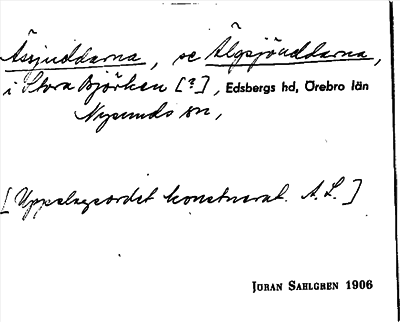 Ässjuddarna, se Älgsjöuddarna,
i Stora Björken [?], Edsbergs hd, Örebro län
Nysunds sn,
[Uppslagsordet konstruerat. A. L.]
JÖRAN SAHLGREN 1906